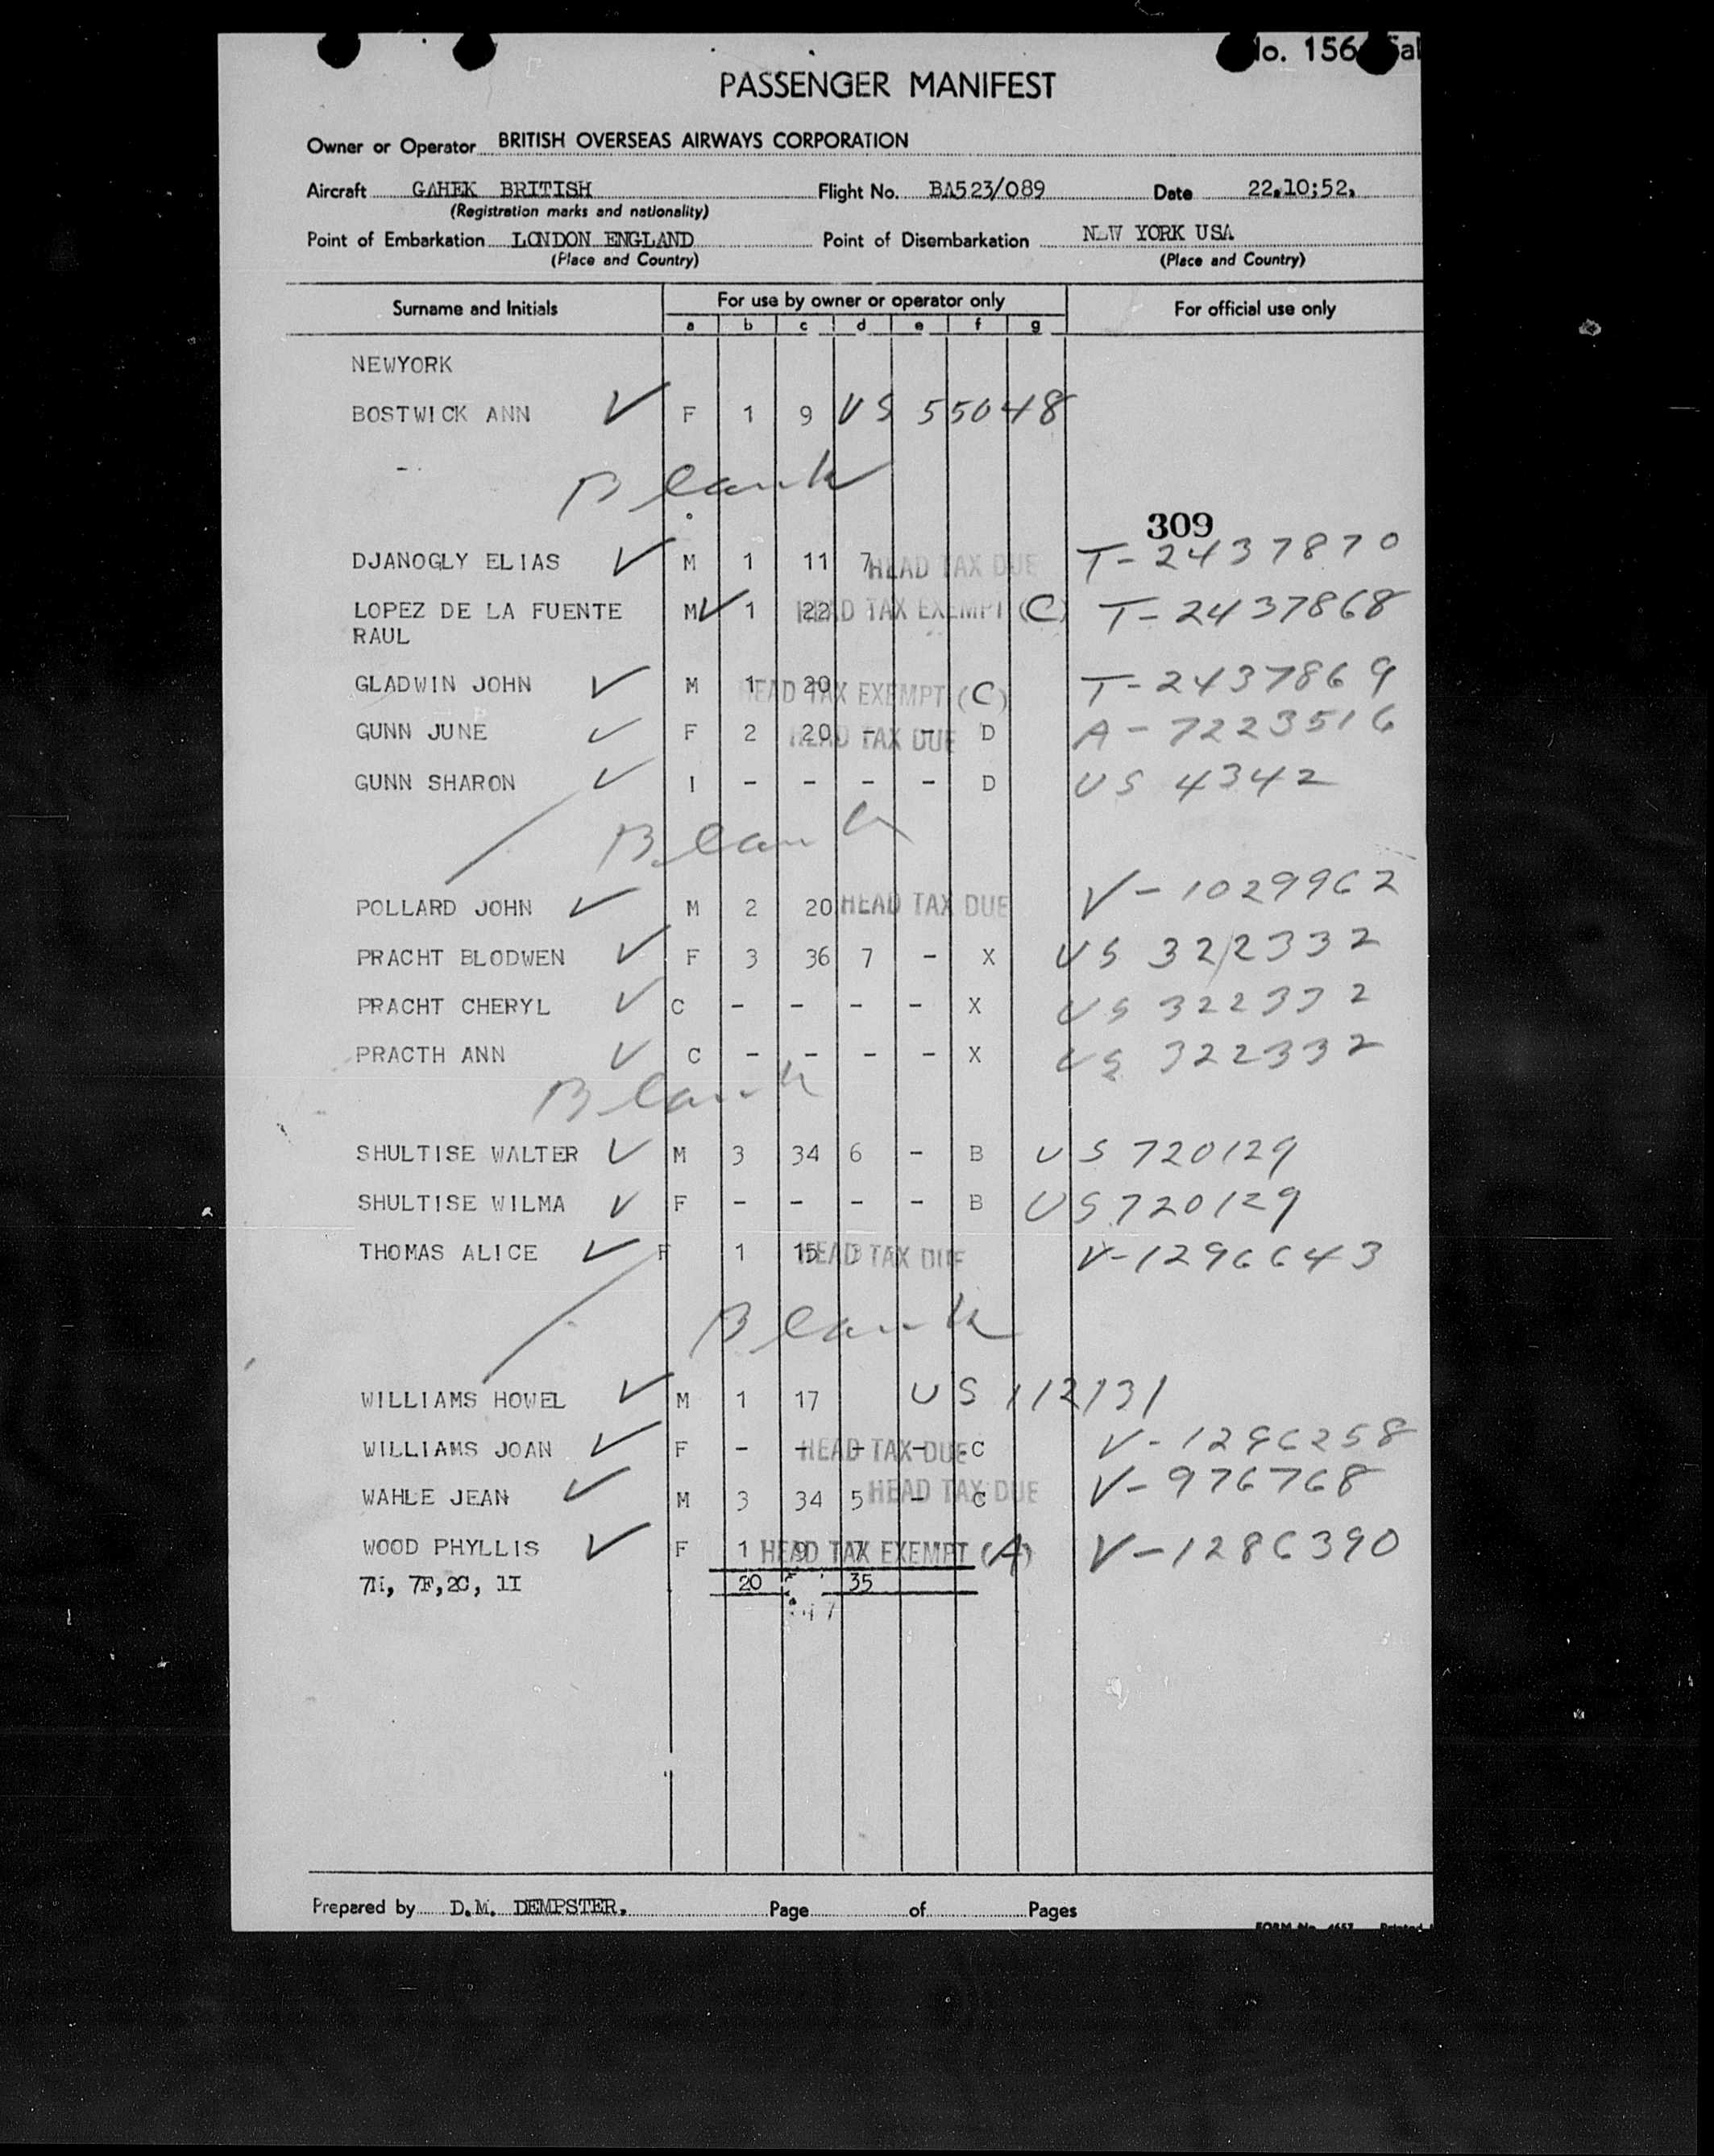 No. 156
PASSENGER MANIFEST
Owner or Operator BRITISH OVERSEAS AIRWAYS CORPORATION
Aircraft GAHEK BRITISH Flight No. BA523/089 Date 22.10;52,
(Registration marks and nationality)
Point of Embarkation LONDON ENGLAND Point of Disembarkation NEW YORK USA
(Place and Country) (Place and Country)
Surname and Initials For use by owner or operator only For official use only
a b c d e f g
NEWYORK
BOSTWICK ANN ✓ F 1 9 US 55048
Blank
309
DJANOGLY ELIAS ✓ M 1 11 7 HEAD TAX DUE T-2437870
LOPEZ DE LA FUENTE M ✓ 1 22 HEAD TAX EXEMPT (C) T-2437868
RAUL
GLADWIN JOHN ✓ M 1 20 HEAD TAX EXEMPT (C) T-2437869
GUNN JUNE ✓ F 2 20 - - D HEAD TAX DUE A-7223516
GUNN SHARON ✓ I - - - - D US 4342
Blank
POLLARD JOHN ✓ M 2 20 HEAD TAX DUE V-1029962
PRACHT BLODWEN ✓ F 3 36 7 - X US 322332
PRACHT CHERYL ✓ C - - - - X US 322332
PRACTH ANN ✓ C - - - - X US 322332
Blank
SHULTISE WALTER ✓ M 3 34 6 - B US 720129
SHULTISE WILMA ✓ F - - - - B US 720129
THOMAS ALICE ✓ F 1 15 HEAD TAX DUE V-1296643
Blank
WILLIAMS HOWEL ✓ M 1 17 US 112131
WILLIAMS JOAN ✓ F - - - - C HEAD TAX DUE V-1296258
WAHLE JEAN ✓ M 3 34 5 - C HEAD TAX DUE V-976768
WOOD PHYLLIS ✓ F 1 9 7 HEAD TAX EXEMPT (A) V-1286390
7M, 7F,2C, 1I 20 35
Prepared by D.M. DEMPSTER. Page of Pages
FORM No. 4657 Printed